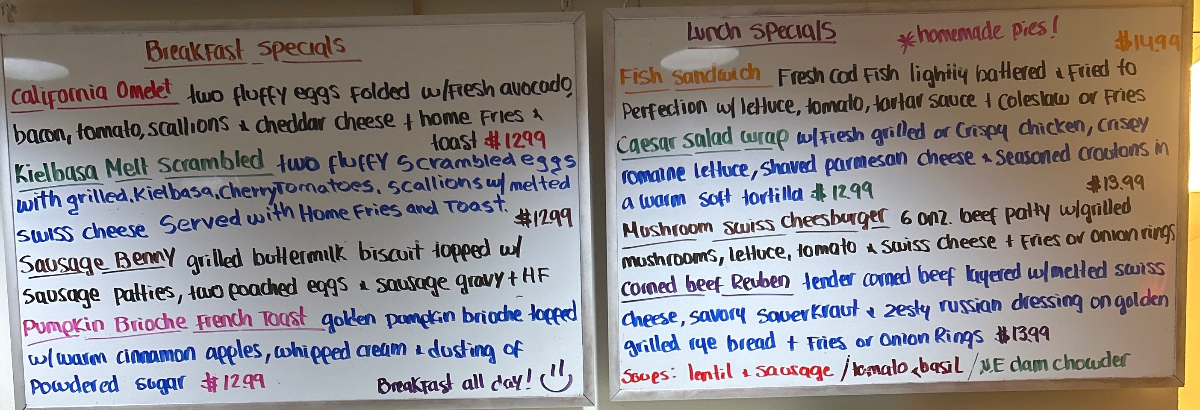 Breakfast specials
California Omelet two fluffy eggs folded w/fresh avocado,
bacon, tomato, scallions & cheddar cheese + home fries &
toast $12.99
Kielbasa Melt Scrambled two fluffy scrambled eggs
with grilled, Kielbasa, Cherry Tomatoes, Scallions w/ melted
swiss cheese Served with Home Fries and Toast. $12.99
Sausage Benny grilled buttermilk biscuit topped w/
Sausage patties, two poached eggs & sausage gravy + HF
Pumpkin Brioche French Toast golden pumpkin brioche topped
w/warm cinnamon apples, whipped cream & dusting of
Powdered sugar $12.99 Breakfast all day!
Lunch Specials *homemade pies!
$14.99
Fish sandwich Fresh Cod Fish lightly battered & Fried to
Perfection w/ lettuce, tomato, tartar sauce + coleslaw or Fries
Caesar salad wrap w/Fresh grilled or Crispy chicken, crispy
romaine lettuce, shaved parmesan cheese & seasoned croutons in
a warm soft tortilla $12.99
$13.99
Mushroom swiss cheesburger 6 onz. beef patty w/grilled
mushrooms, lettuce, tomato & swiss cheese + Fries or onion rings
corned beef Reuben tender corned beef layered w/melted swiss
cheese, savory sauerkraut & zesty russian dressing on golden
grilled rye bread + Fries or Onion Rings $13.99
Soups: lentil & sausage / tomato basil / NE clam chowder